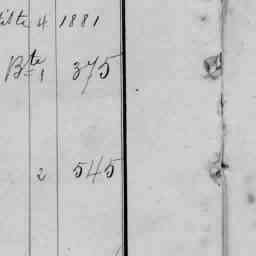 4 1881
Bte 1 375
2 545